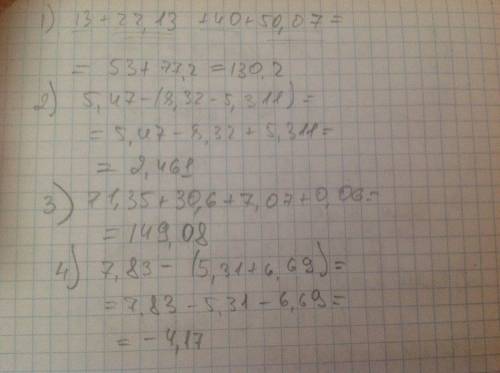 1) 13 + 27,13 + 40 + 50,07 =
= 53 + 77,2 = 130,2
2) 5,47 - (8,32 - 5,311) =
= 5,47 - 8,32 + 5,311 =
= 2,461
3) 111,35 + 30,6 + 7,07 + 0,06 =
= 149,08
4) 7,83 - (5,31 + 6,69) =
= 7,83 - 5,31 - 6,69 =
= - 4,17